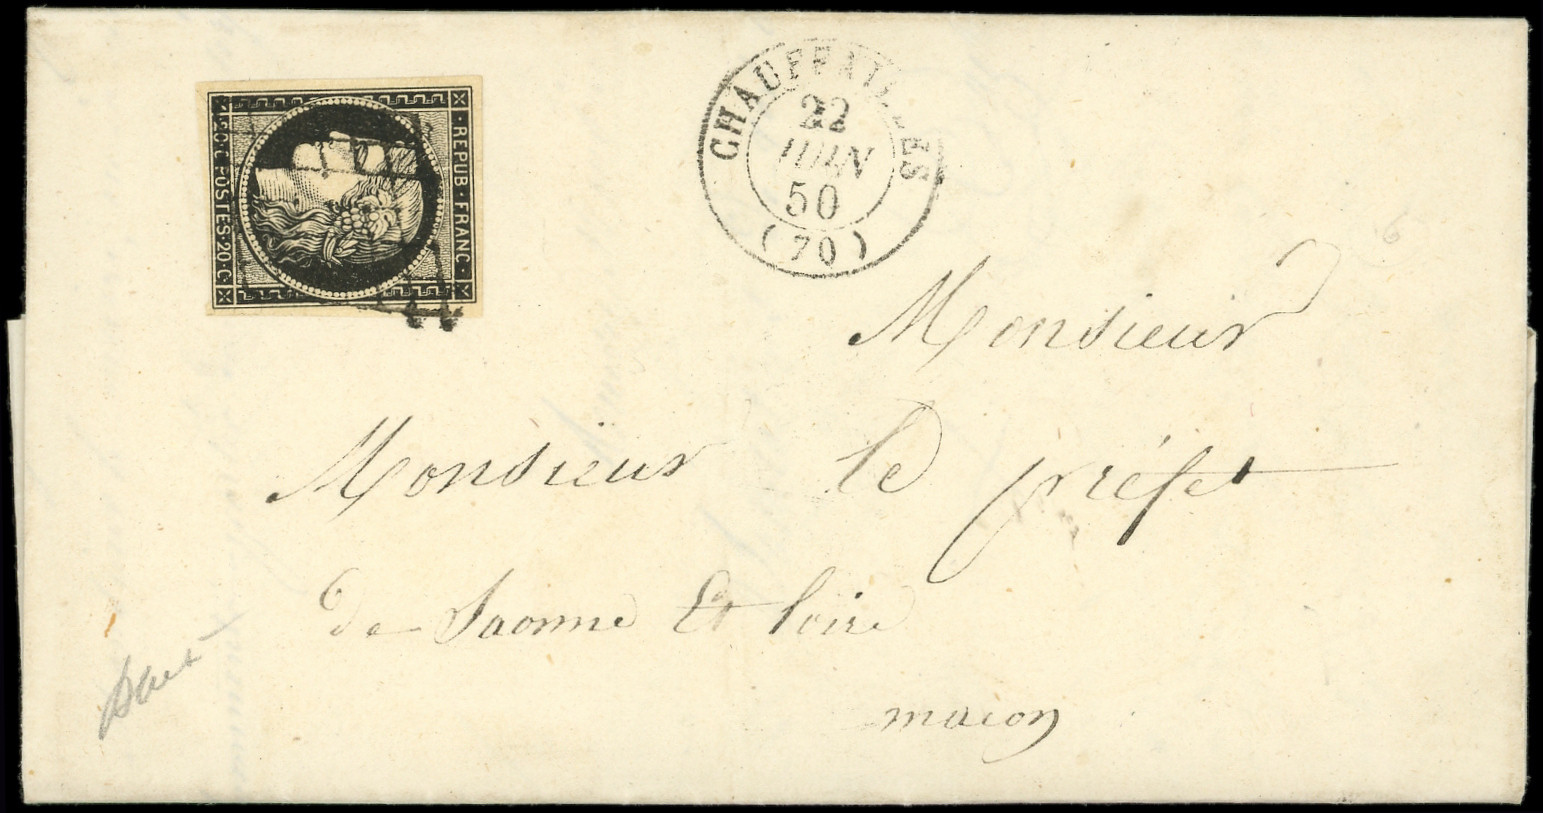 REPUB·FRANC·
20·C·POSTES·20·C
CHAUFFAILLES
22
JUIN
50
(70)
Monsieur
Monsieur le préfet
de Saonne Et loire
macon